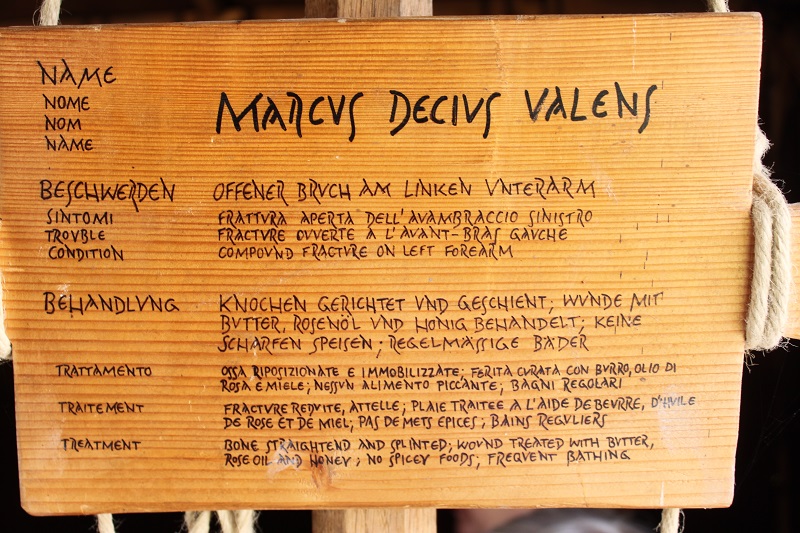 NAME
NOME
NOM
NAME
MARCVS DECIVS VALENS
BESCHWERDEN OFFENER BRVCH AM LINKEN VNTERARM
SINTOMI FRATTVRA APERTA DELL'AVAMBRACCIO SINISTRO
TROVBLE FRACTVRE OVVERTE A L'AVANT-BRAS GAVCHE
CONDITION COMPOVND FRACTVRE ON LEFT FOREARM
BEHANDLVNG KNOCHEN GERICHTET VND GESCHIENT; WVNDE MIT
BVTTER, ROSENÖL VND HONIG BEHANDELT; KEINE
SCHARFEN SPEISEN; REGELMÄSSIGE BÄDER
TRATTAMENTO OSSA RIPOSIZIONATE E IMMOBILIZZATE; FERITA CVRATA CON BVRRO, OLIO DI
ROSA E MIELE; NESSVN ALIMENTO PICCANTE; BAGNI REGOLARI
TRAITEMENT FRACTVRE REDVITE, ATTELLE; PLAIE TRAITEE A L'AIDE DE BEVRRE, D'HVILE
DE ROSE ET DE MIEL; PAS DE METS EPICES; BAINS REGVLIERS
TREATMENT BONE STRAIGHTEND AND SPLINTED; WOVND TREATED WITH BVTTER,
ROSE OIL AND HONEY; NO SPICEY FOODS; FREQVENT BATHING